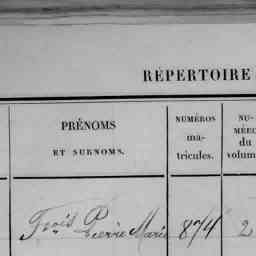 RÉPERTOIRE
PRÉNOMS
ET SURNOMS.
NUMÉROS
ma-
tricules.
NU-
MÉRO
du
volum
Frois Pierre Marie 874 2